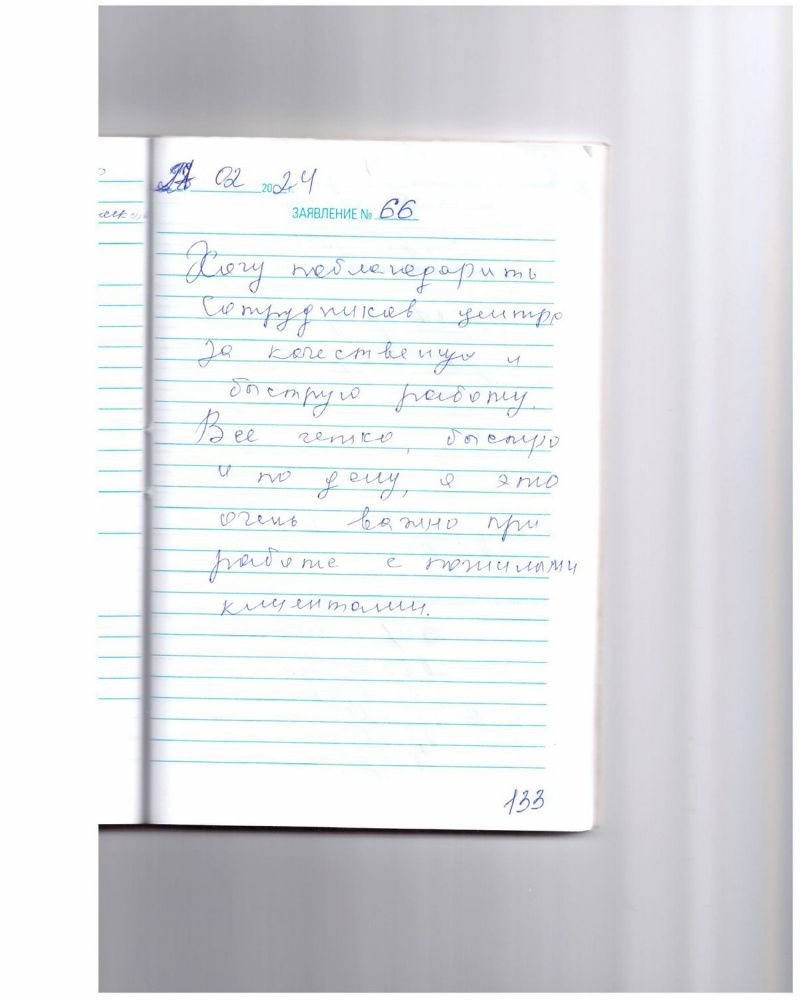 02 2024
ЗАЯВЛЕНИЕ № 66
Хочу поблагодарить
сотрудников центра
за качественную и
быструю работу.
Все четко, быстро
и по делу, а это
очень важно при
работе с пожилыми
клиентами.
133